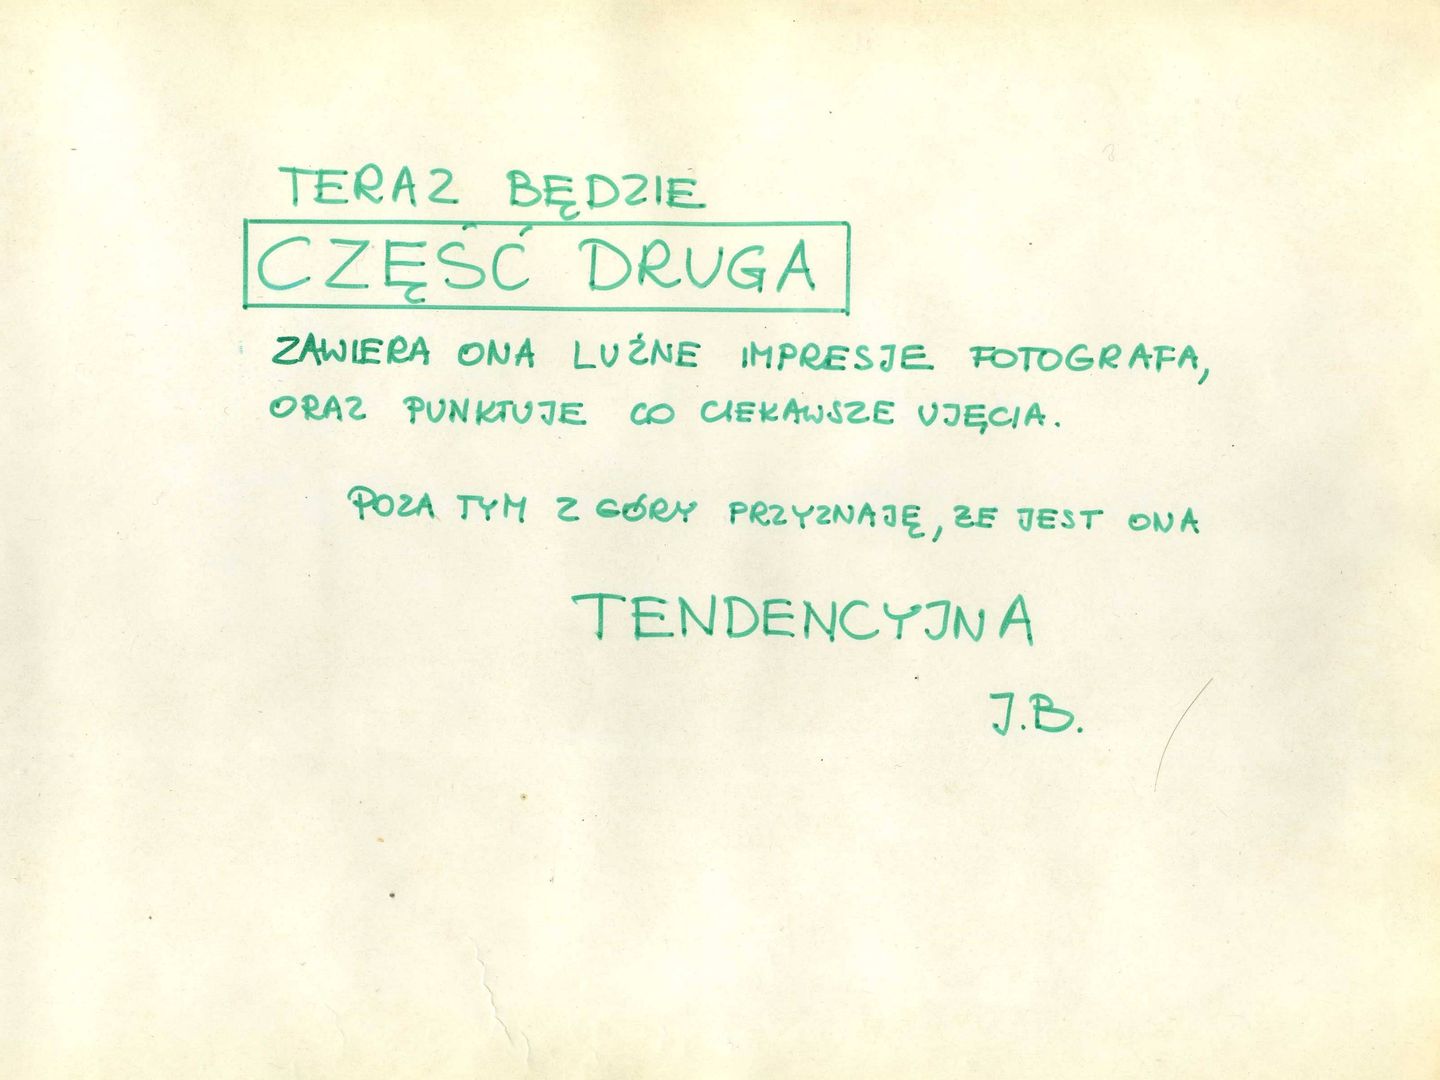 TERAZ BĘDZIE
CZĘŚĆ DRUGA
ZAWIERA ONA LUŹNE IMPRESJE FOTOGRAFA,
ORAZ PUNKTUJE CO CIEKAWSZE UJĘCIA.
POZA TYM Z GÓRY PRZYZNAJĘ, ŻE JEST ONA
TENDENCYJNA
J.B.